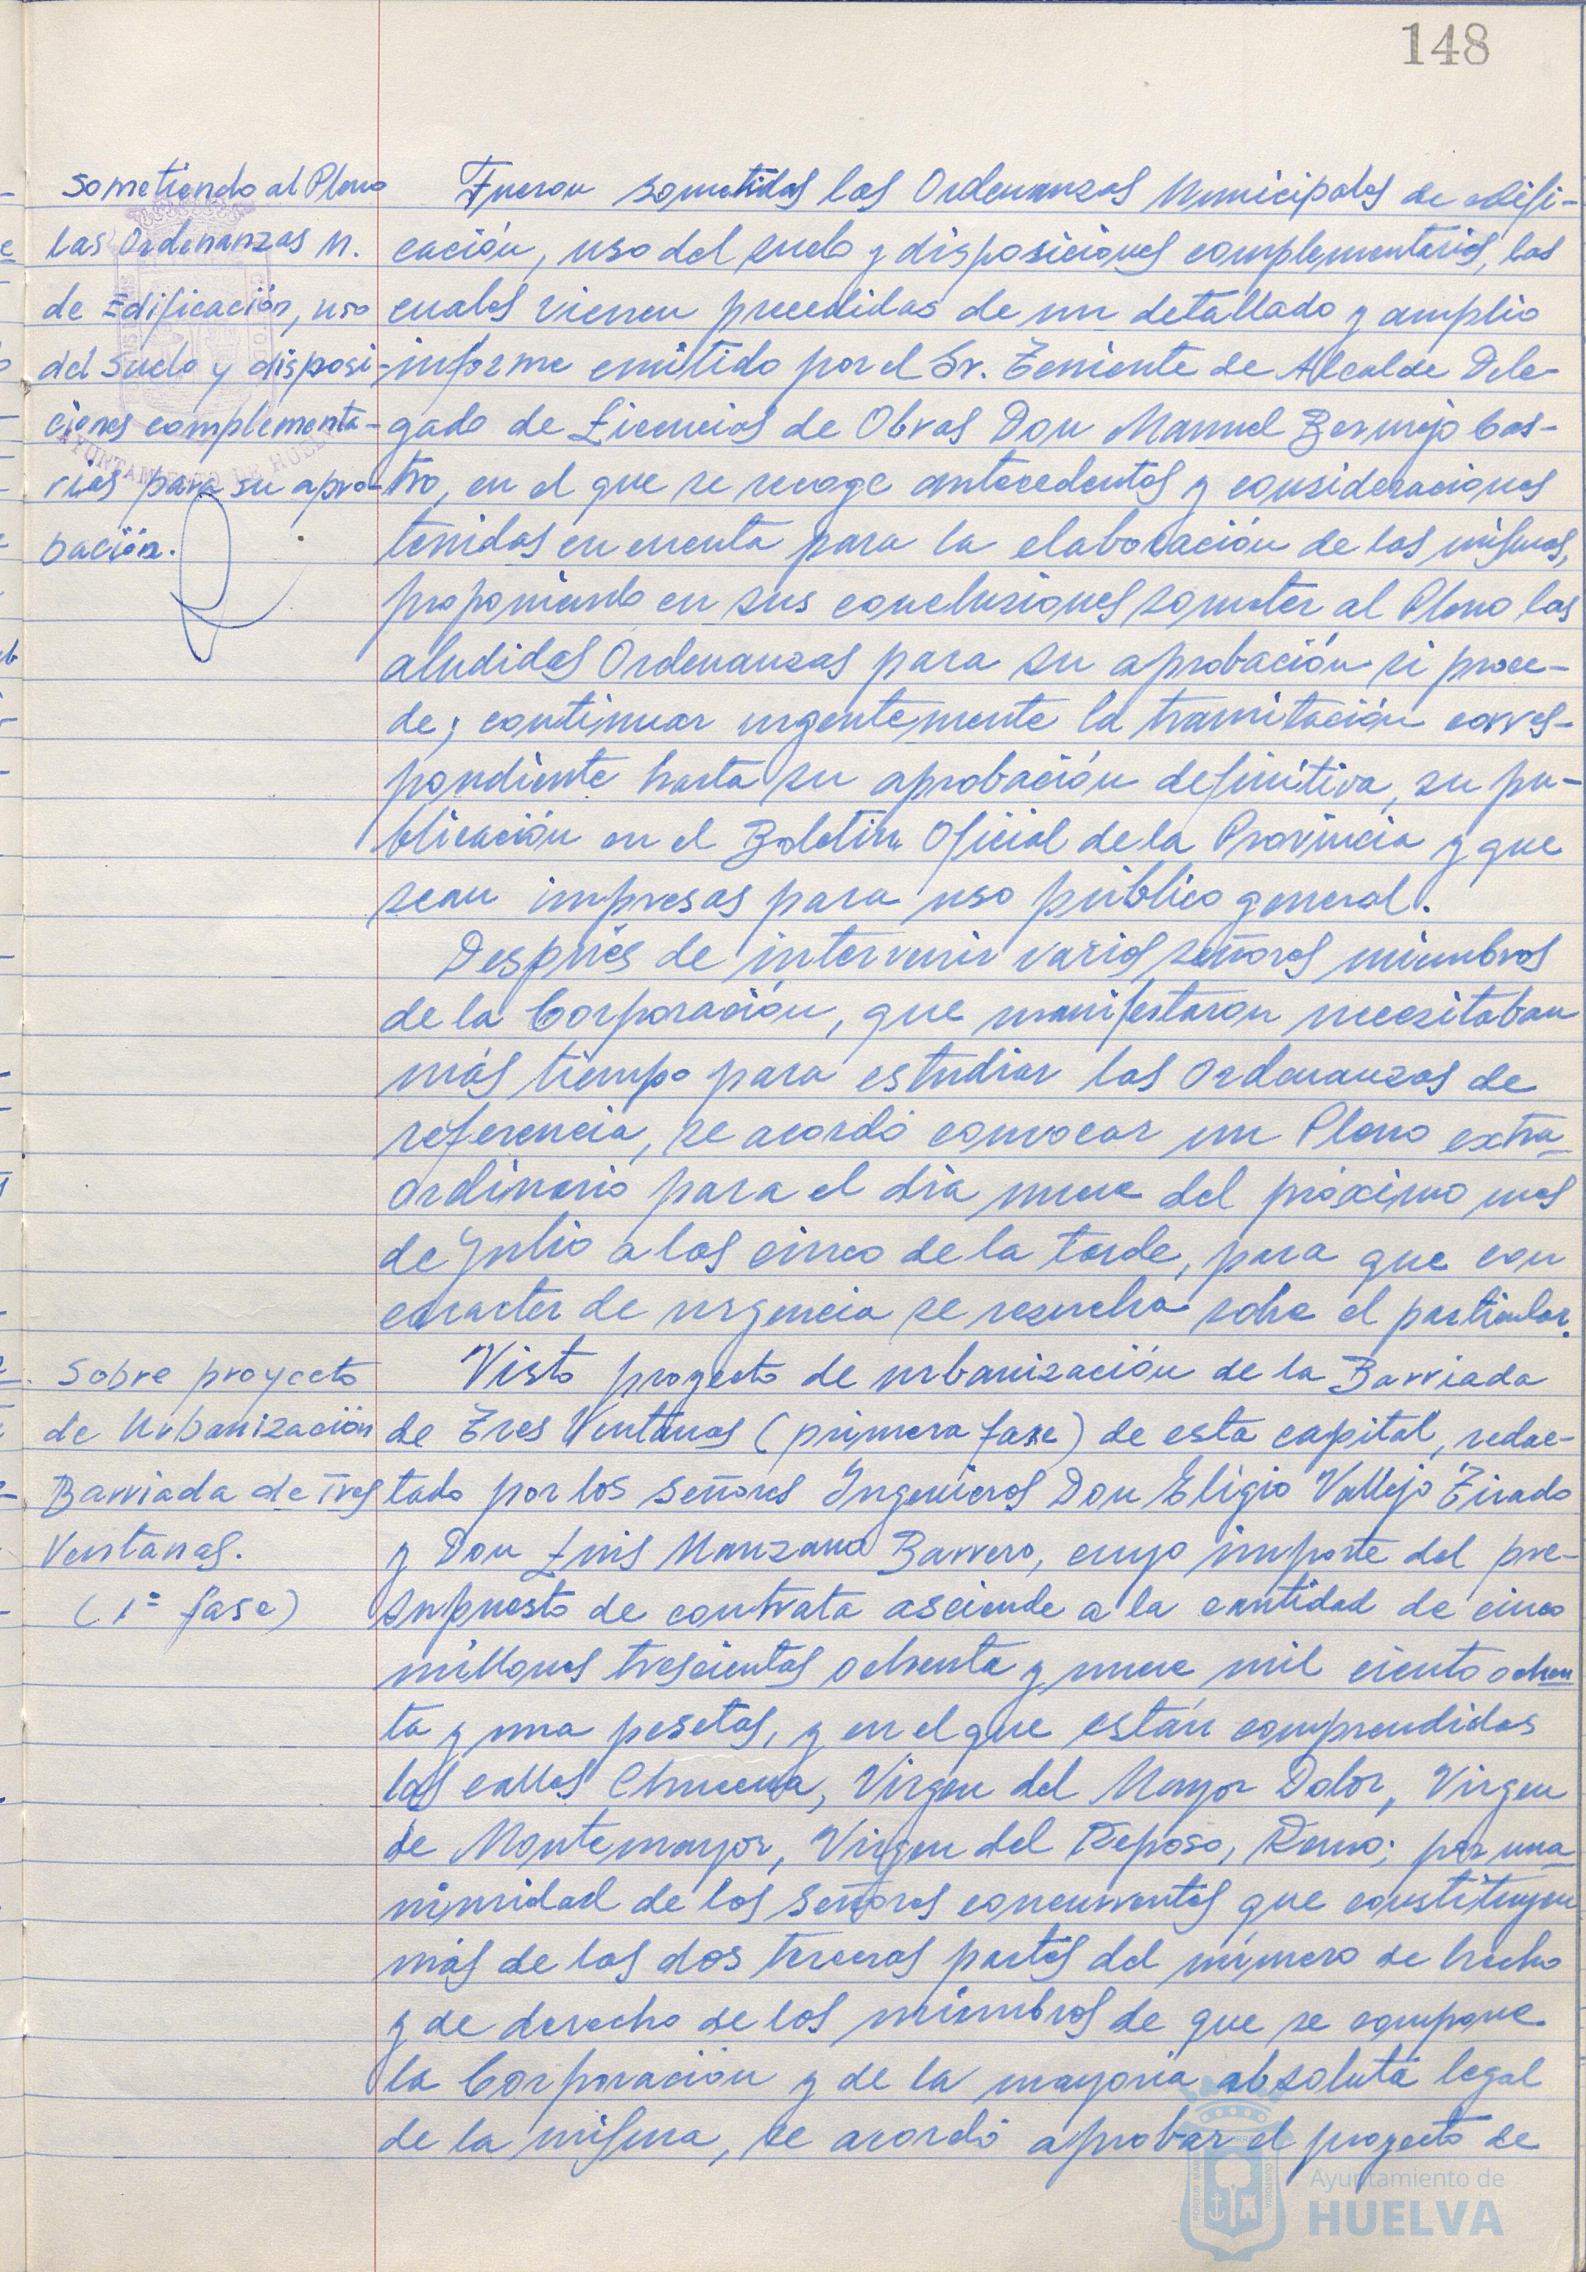 148
Sometiendo al Pleno
las Ordenanzas M.
de Edificación, uso
del Suelo y disposi-
ciones complementa-
rias para su apro-
bación.
Fueron sometidas las Ordenanzas Municipales de edifi-
cación, uso del suelo y disposiciones complementarias, las
cuales vienen precedidas de un detallado y amplio
informe emitido por el Sr. Teniente de Alcalde Dele-
gado de Licencias de Obras Don Manuel Bermejo Cas-
tro, en el que se recoge antecedentes y consideraciones
tenidas en cuenta para la elaboración de las mismas,
proponiendo en sus conclusiones someter al Pleno las
aludidas Ordenanzas para su aprobación si proce-
de; continuar urgentemente la tramitación corres-
pondiente hasta su aprobación definitiva, su pu-
blicación en el Boletín Oficial de la Provincia y que
sean impresas para uso público general.
Después de intervenir varios señores miembros
de la Corporación, que manifestaron necesitaban
más tiempo para estudiar las Ordenanzas de
referencia, se acordó convocar un Pleno extra-
ordinario para el día nueve del próximo mes
de Julio a las cinco de la tarde, para que con
caracter de urgencia se resuelva sobre el particular.
Sobre proyecto
de Urbanización
Barriada de Tres
Ventanas.
(1ª fase)
Visto proyecto de urbanización de la Barriada
de Tres Ventanas (primera fase) de esta capital, redac-
tado por los señores Ingenieros Don Eligio Vallejo Tirado
y Don Luis Manzano Barrero, cuyo importe del pre-
supuesto de contrata asciende a la cantidad de cinco
millones trescientas ochenta y nueve mil ciento ochen
ta y una pesetas, y en el que están comprendidas
las calles Chucena, Virgen del Mayor Dolor, Virgen
de Montemayor, Virgen del Reposo, Remo; por una-
nimidad de los Señores concurrentes que constituyen
más de las dos terceras partes del número de hecho
y de derecho de los miembros de que se compone
la Corporación y de la mayoria absoluta legal
de la misma, se acordó aprobar el proyecto de
AYUNTAMIENTO DE HUELVA
Ayuntamiento de
HUELVA